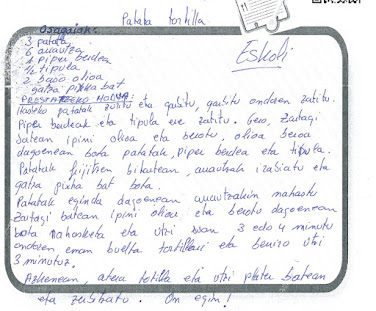 Patata tortilla
Osagaiak:
3 patata
6 arrautza
4 piper berdea
1/2 tipula
2 baso olioa
gatza pixka bat
Eskoli
PRESTATZEKO MODUA:
Hasteko patatak zuritu eta garbitu, garbitu ondoren zatitu.
Piper berdeak eta tipula ere zatitu. Gero, zartagi
batean ipini olioa eta berotu, olioa beroa
dagoenean bota patatak, piper berdea eta tipula.
Patatak frijitzen bitartean, arrautzak irabiatu eta
gatza pixka bat bota.
Patatak eginda dagoenean arrautzakin nahastu
Zartagi batean ipini olioa eta berotu dagoenean
bota nahasketa eta utzi 3 edo 4 minutu
ondoren eman buelta tortillari eta berriro utzi
3 minutuz.
Azkenean, atera tortilla eta utzi plater batean
eta zerbitzatu. On egin!